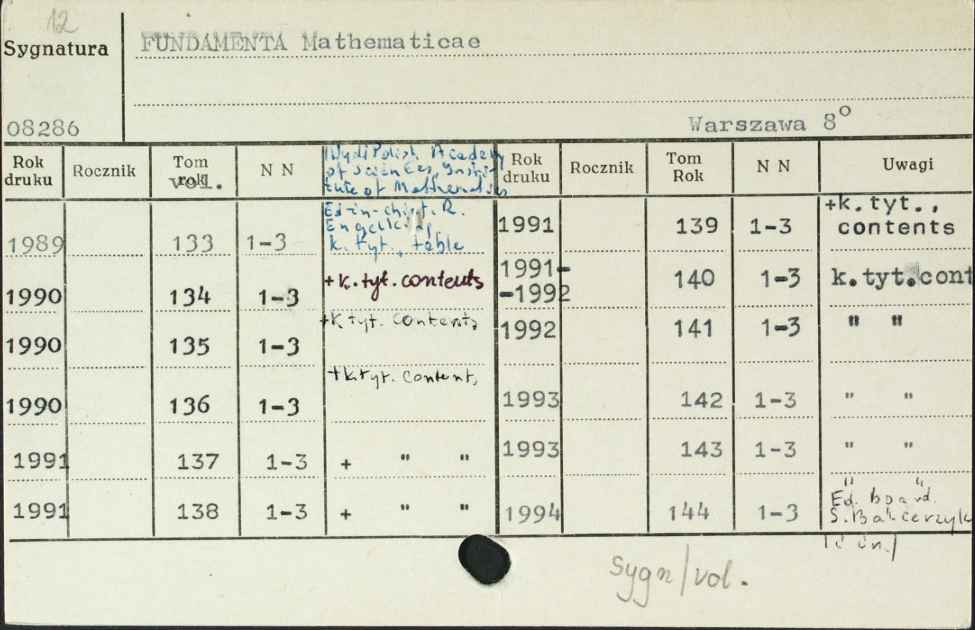 12
Sygnatura FUNDAMENTA Mathematicae
08286 Warszawa 8°
Rok druku Rocznik Tom vol. N N Wyd: Polish Academy of Sciences, Institute of Mathematics Rok druku Rocznik Tom Rok N N Uwagi
1989 133 1-3 Ed-in-chief. R. Engelking, k. tyt., table 1991 139 1-3 +k.tyt., contents
1990 134 1-3 +k.tyt.contents 1991- -1992 140 1-3 k.tyt.cont
1990 135 1-3 +k tyt. contents 1992 141 1-3 " "
1990 136 1-3 +k.tyt. contents 1993 142 1-3 " "
1991 137 1-3 + " " 1993 143 1-3 " "
1991 138 1-3 + " " 1994 144 1-3 " " Ed. board. S. Balcerzyk
[i in.]
sygn/vol.